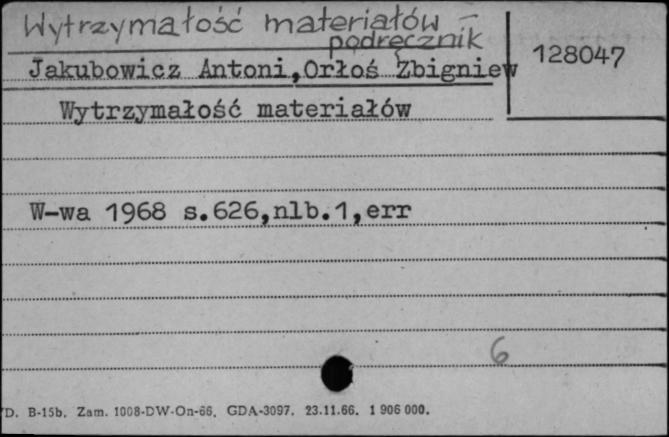 Wytrzymałość materiałów –
podręcznik
128047
Jakubowicz Antoni,Orłoś Zbigniew
Wytrzymałość materiałów
W-wa 1968 s.626,nlb.1,err
6
D. B-15b. Zam. 1008-DW-On-66. GDA-3097. 23.11.66. 1 906 000.